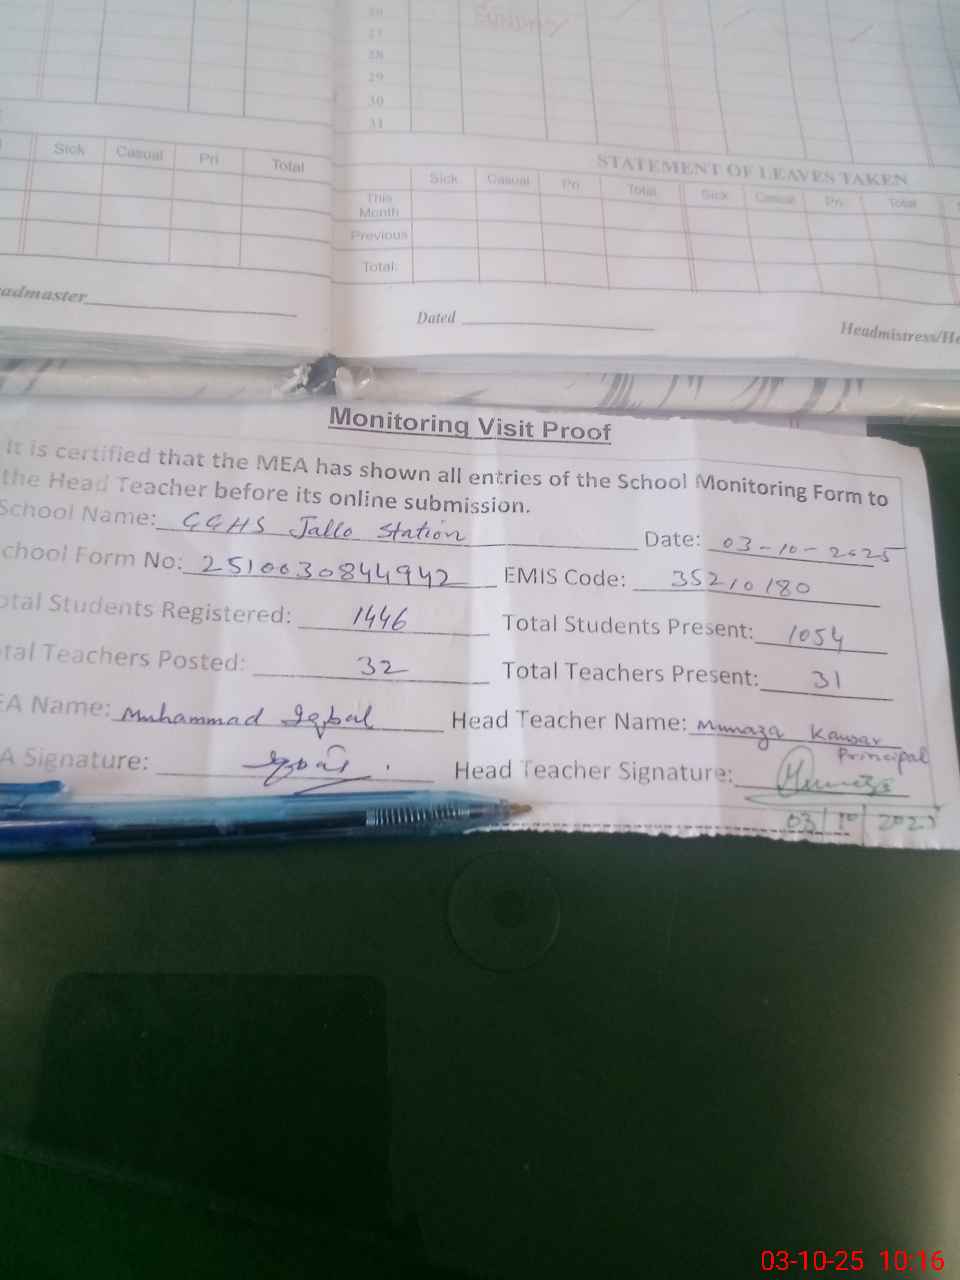 28
29
30
31
Sick Casual Pri Total
STATEMENT OF LEAVES TAKEN
Sick Casual Pri Total Sick Casual Pri Total
This Month
Previous
Total:
admaster
Dated
Headmistress/He
Monitoring Visit Proof
It is certified that the MEA has shown all entries of the School Monitoring Form to
the Head Teacher before its online submission.
School Name: GGHS Jallo Station Date: 03-10-2025
chool Form No: 2510030844942 EMIS Code: 35210180
otal Students Registered: 1446 Total Students Present: 1054
tal Teachers Posted: 32 Total Teachers Present: 31
EA Name: Muhammad Iqbal Head Teacher Name: Munaza Kausar
Principal
A Signature: Iqbal Head Teacher Signature: Munaza
03/10/2025
03-10-25 10:16